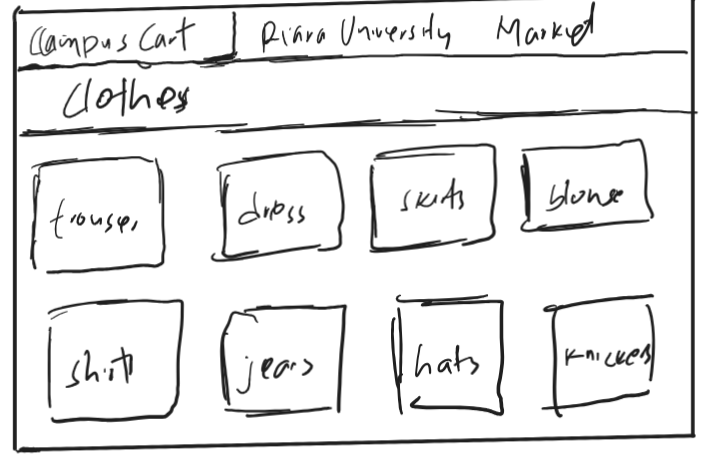 Campus Cart Riara University Market
Clothes
trouser dress skirts blouse
shirt jeans hats knickers